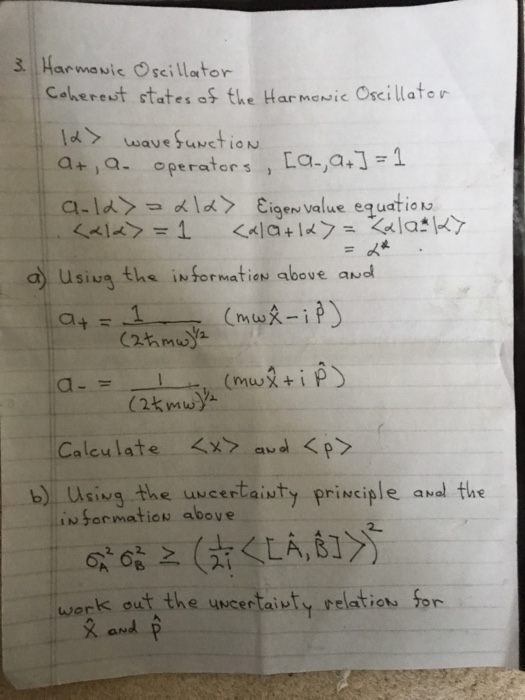 3. Harmonic Oscillator
Coherent states of the Harmonic Oscillator
|α> wavefunction
a+, a- operators, [a-,a+] = 1
a-|α> = α|α> Eigenvalue equation
<α|α> = 1 <α|a+|α> = <α|a-*|α>
= α*
a) Using the information above and
a+ = 1/(2ħmω)^1/2 (mωx̂ - i p̂)
a- = 1/(2ħmω)^1/2 (mωx̂ + i p̂)
Calculate <x> and <p>
b) Using the uncertainty principle and the
information above
σ_A^2 σ_B^2 ≥ (1/2i <[Â,B̂]>)^2
work out the uncertainty relation for
x̂ and p̂